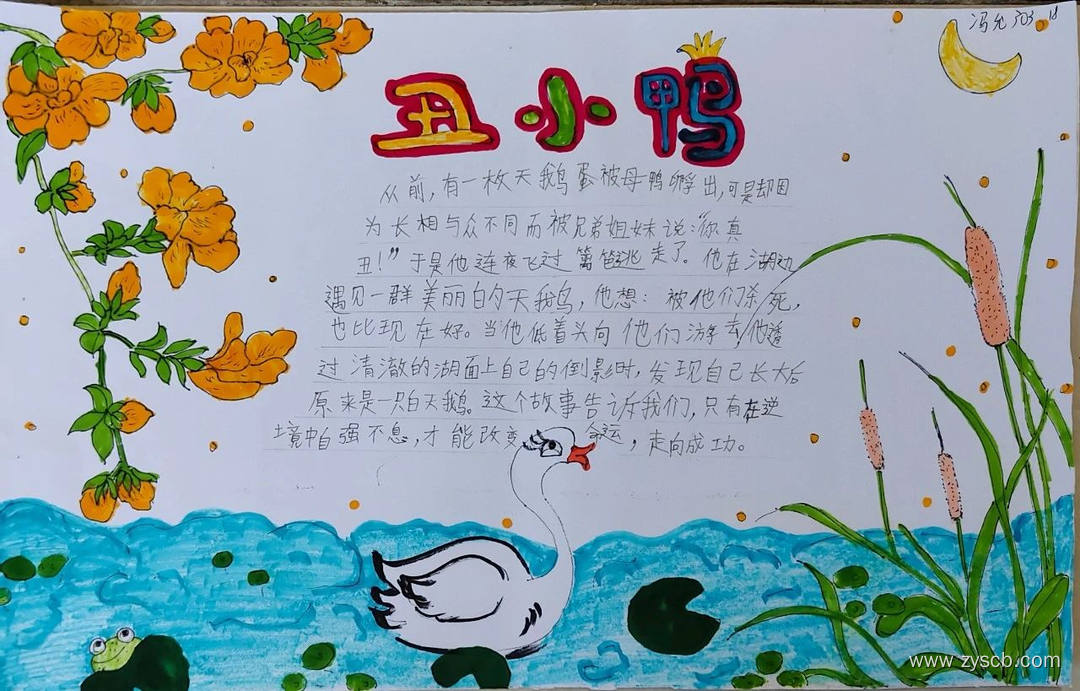 冯允 303 18
丑小鸭
从前,有一枚天鹅蛋被母鸭孵出,可是却因
为长相与众不同而被兄弟姐妹说:“你真
丑!”于是他连夜飞过篱笆逃走了。他在湖边
遇见一群美丽的天鹅,他想:被他们杀死,
也比现在好。当他低着头向他们游去,他透
过清澈的湖面上自己的倒影时,发现自己长大后
原来是一只白天鹅。这个故事告诉我们,只有在逆
境中自强不息,才能改变命运,走向成功。
www.zyscb.com